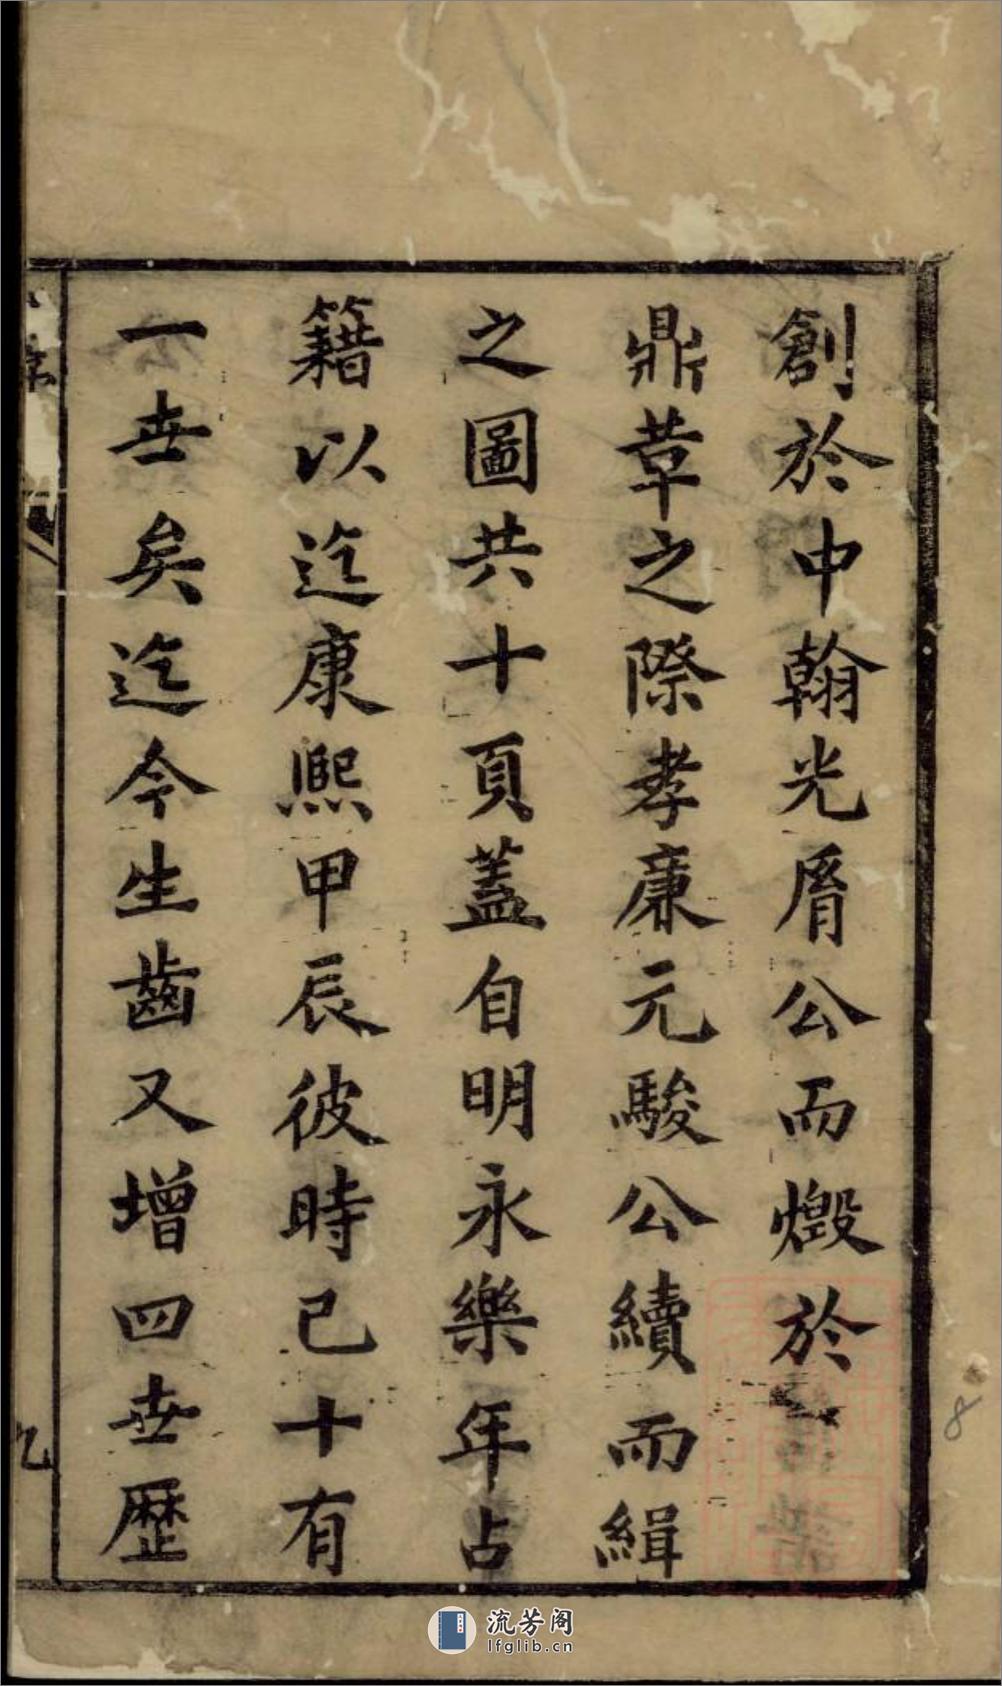 創於中翰光厝公而燬於
鼎革之際孝廉元駿公續而緝
之圖共十頁蓋自明永樂年占
籍以迄康熙甲辰彼時已十有
一世矣迄今生齒又增四世歷
九
8
流芳阁
lfglib.cn